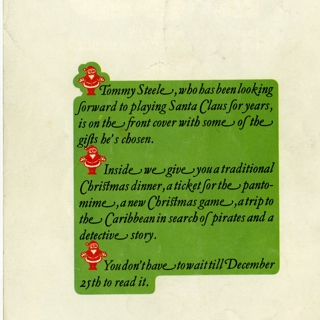 Tommy Steele, who has been looking
forward to playing Santa Claus for years,
is on the front cover with some of the
gifts he's chosen.
Inside we give you a traditional
Christmas dinner, a ticket for the panto-
mime, a new Christmas game, a trip to
the Caribbean in search of pirates and a
detective story.
You don't have to wait till December
25th to read it.